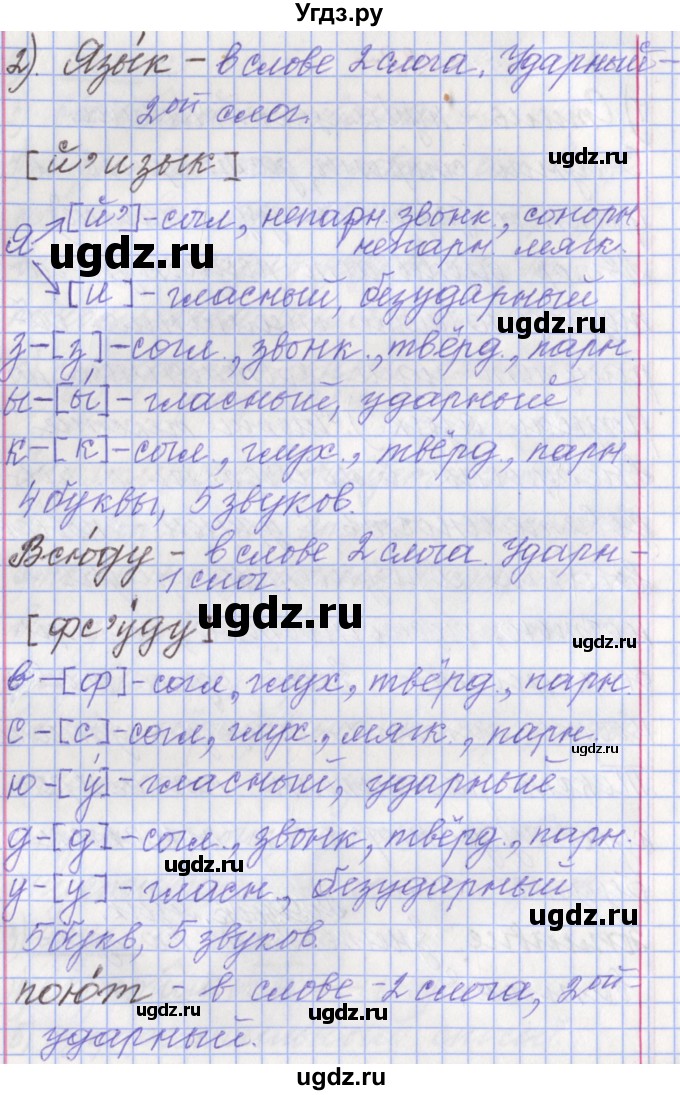 Угдз.ру
2). Язы́к – в слове 2 слога. Ударный –
2ой слог.
[й’изык]
ugdz.ru
я [й’] – согл, непарн. звонк., сонорн.
непарн. мягк.
ugdz.ru
[и] – гласный, безударный
ugdz.ru
з – [з] – согл., звонк., твёрд., парн.
ы – [ы́] – гласный, ударный
к – [к] – согл., глух., твёрд., парн.
4 буквы, 5 звуков.
Всю́ду – в слове 2 слога. Ударн –
1 слог.
ugdz.ru
[фс’у́ду]
ugdz.ru
в – [ф] – согл, глух, твёрд., парн.
с – [с] – согл, глух., мягк., парн.
ugdz.ru
ю – [у́] – гласный, ударный
д – [д] – согл., звонк, твёрд., парн.
ugdz.ru
у – [у] – гласн., безударный
ugdz.ru
5 букв, 5 звуков.
пою́т – в слове – 2 слога, 2ой –
ugdz.ru
ударный.
ugdz.ru
ugdz.ru